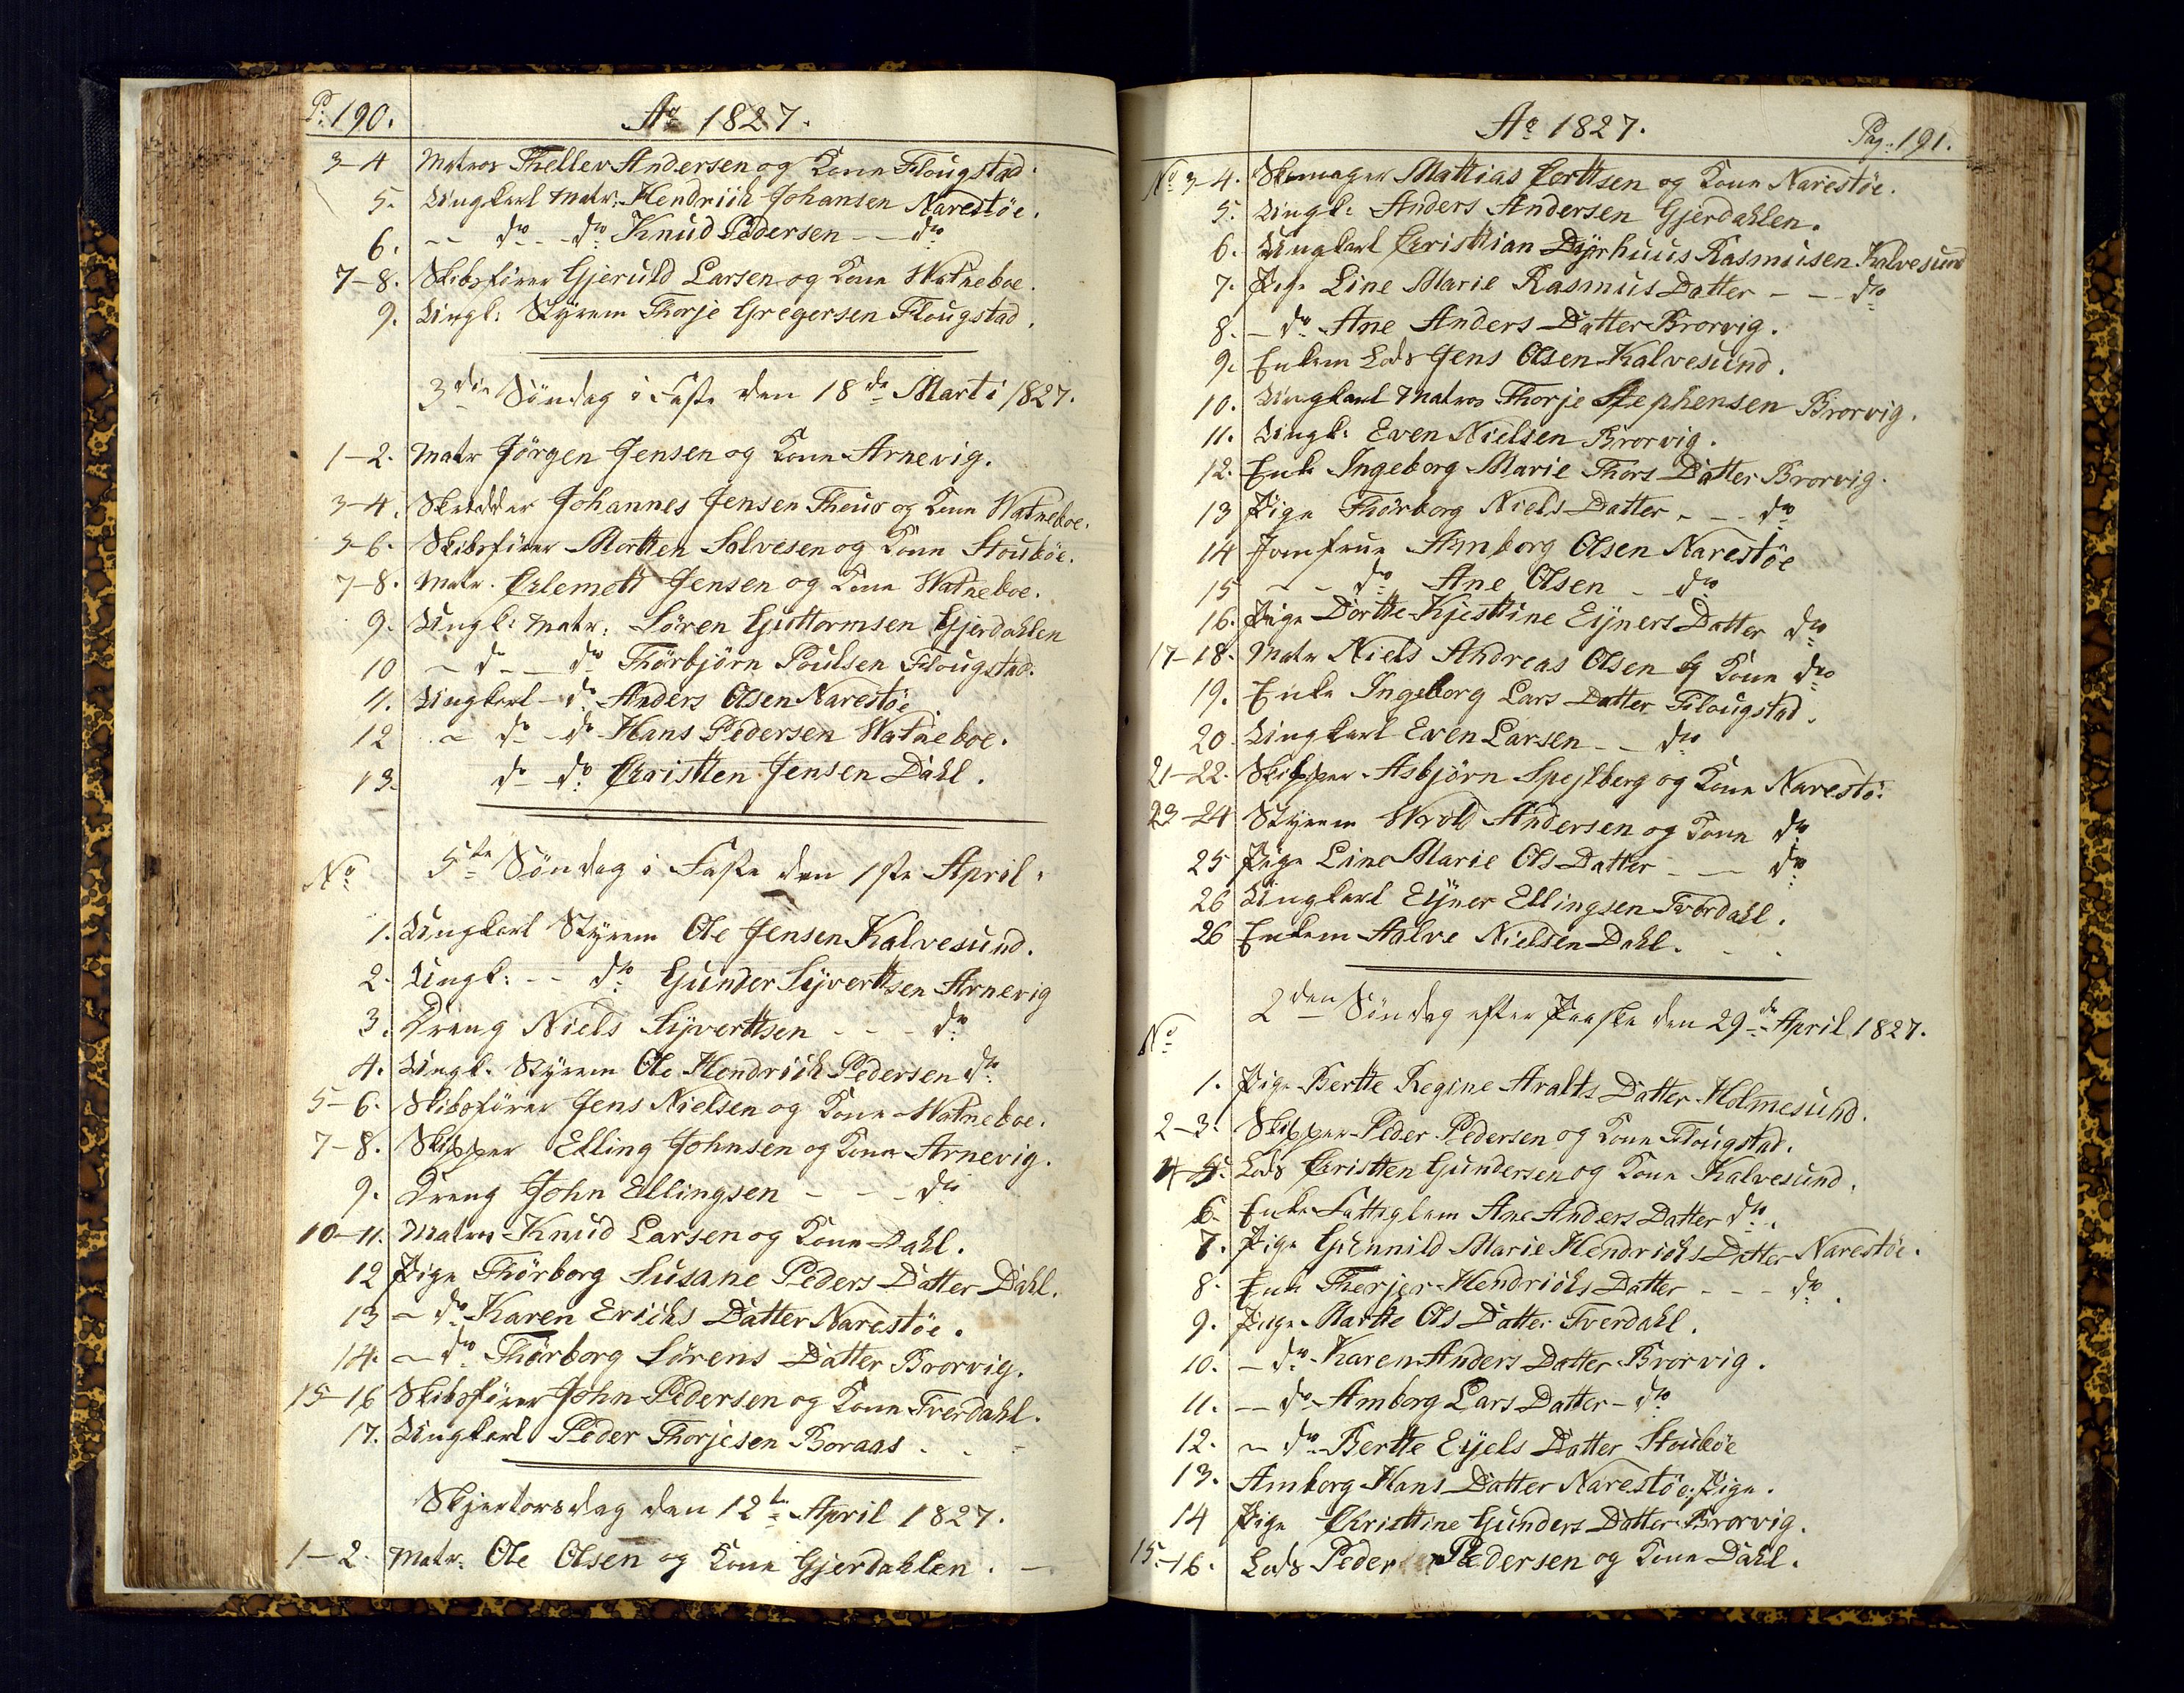 P: 190.
Ao 1827.
3-4 Matros Theller Andersen og Kone Flougstad.
5. Ungkarl Matr: Hendrich Johansen Narestöe.
6. — do — do Knud Pedersen — do
7-8. Skibsförer Gjeruld Larsen og Kone Watneboe.
9. Ungk: Styrem Thorje Gregersen Flougstad.
3die Söndag i Faste den 18de Marti 1827.
1-2. Matr Jörgen Jensen og Kone Arnevig.
3-4. Skredder Johannes Jensen Theus og Kone Watneboe.
5-6. Skibsförer Mortten Salvesen og Kone Stouböe.
7-8. Matr. Clemett Jensen og Kone Watneboe.
9. Ungk: Matr: Sören Guttormsen Gjerdahlen
10 — d — do Thörbjörn Poulsen Flougstad.
11. Ungkarl — do Anders Olsen Narestöe.
12 — do — do Hans Pedersen Watneboe.
13. do — do Christen Jensen Dahl.
No 5te Söndag i Faste den 1ste April.
1. Ungkarl Styrem Ole Jensen Kalvesund.
2. Ungk: — do Gunder Syverttsen Arnevig
3. Dreng Niels Syverttsen — — do
4. Ungk. Styrem Ole Hendrich Pedersen do
5-6. Skibsförer Jens Nielsen og Kone Watneboe.
7-8. Skipper Elling Johnsen og Kone Arnevig.
9. Dreng John Ellingsen — — do
10-11. Matros Knud Larsen og Kone Dahl.
12 Pige Thörborg Susane Peders Datter Dahl.
13 — do Karen Erichs Datter Narestöe.
14. — do Thörborg Sörens Datter Brorvig.
15-16 Skibsförer John Pedersen og Kone Tverdahl.
17. Ungkarl Peder Thorjesen Boraas
Skjertorsdag den 12te April 1827.
1-2. Matr: Ole Olsen og Kone Gjerdahlen. —
Ao 1827.
Pag: 191.
No 3-4. Skomager Mattias Certtsen og Kone Narestöe.
5. Ungk: Anders Andersen Gjerdahlen.
6. Ungkarl Christian Dyrhuus Rasmusen Kalvesund
7. Pige Line Marie Rasmus Datter — — do
8. — do Ane Anders Datter Brorvig.
9. Enkem Lods Jens Olsen Kalvesund.
10. Ungkarl Matros Thorje Stephensen Brorvig.
11. Ungk: Even Nielsen Brorvig.
12. Enke Ingeborg Marie Thors Datter Brorvig.
13 Pige Thörborg Niels Datter — — do
14 Jomfrue Amborg Olsen Narestöe
15 — — do Ane Olsen — do
16. Pige Dortte Kjesttine Eyners Datter do
17-18. Matr Niels Andreas Olsen og Kone do
19. Enke Ingeborg Lars Datter Flougstad.
20. Ungkarl Even Larsen — — do
21-22. Skipper Asbjörn Spejlberg og Kone Narestö.
23-24 Styrem Wrold Andersen og Kone do
25 Pige Line Marie Ols Datter — — do
26 Ungkarl Eyner Ellingsen Tverdahl.
26 Enkem Aalve Nielsen Dahl.
No 2den Söndag efter Paaske den 29de April 1827.
1. Pige Bertte Regine Aralts Datter Holmesund.
2-3. Skipper Peder Pedersen og Kone Flougstad.
4-5. Lods Christen Gundersen og Kone Kalvesund.
6. Enke Fattiglem Ane Anders Datter do.
7. Pige Gunnild Marie Hendrichs Datter Narestöe.
8. Enk Therjer Hendrichs Datter — — — do.
9. Pige Martte Ols Datter Tverdahl.
10. — do Karen Anders Datter Brorvig.
11. — do Amborg Lars Datter — do
12. — do Bertte Eyels Datter Stouböe
13. Amborg Hans Datter Narestöe, Pige.
14 Pige Christtine Gunders Datter Brorvig.
15-16. Lods Peder Pedersen og Kone Dahl.